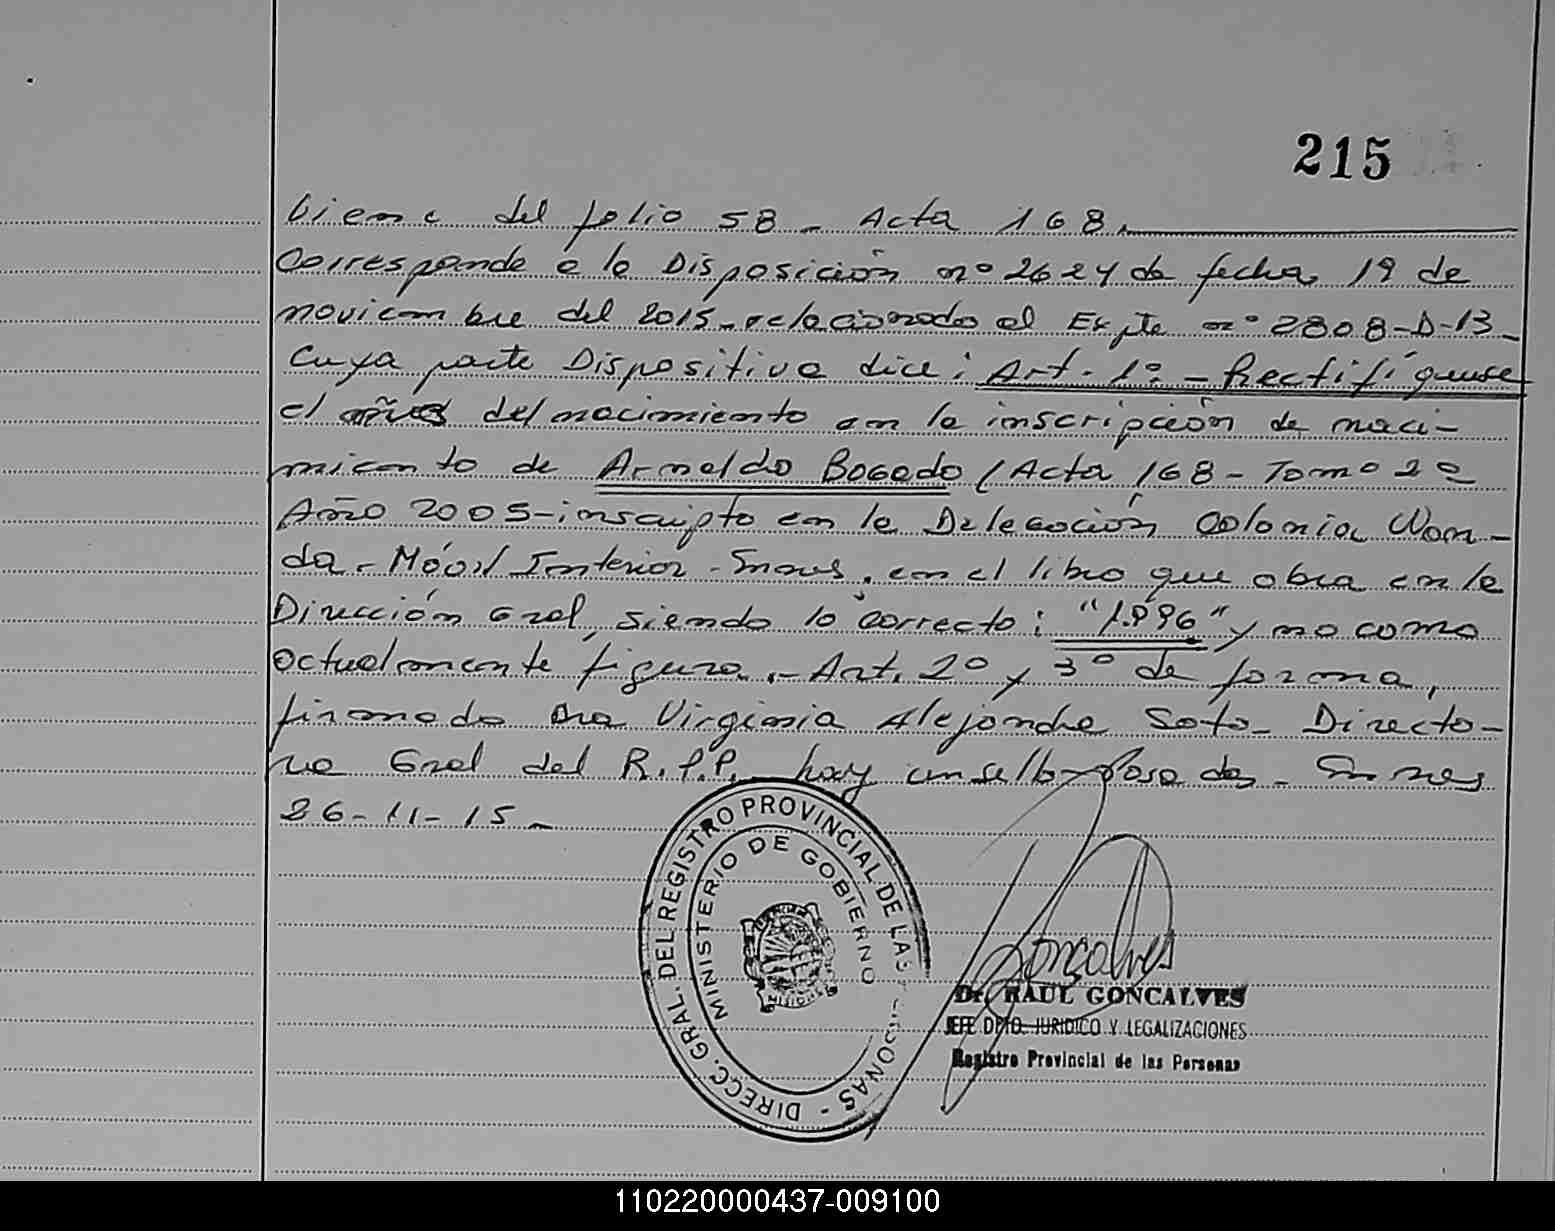 215
Viene del folio 58 - Acta 168.
Corresponde a la Disposición nº 2624 de fecha 19 de
noviembre del 2015 - relacionado al Expte nº 2808-D-13 -
Cuya parte Dispositiva dice: Art. 1º - Rectifíquese
el año del nacimiento en la inscripción de naci-
miento de Arnaldo Bogado (Acta 168 - Tomo 2º
Año 2005 - inscripto en la Delegación Colonia Wan-
da - Móvil Interior - Snes, en el libro que obra en la
Dirección Gral, siendo lo correcto: "1.996" y no como
actualmente figura. - Art. 2º y 3º de forma,
firmado Dra Virginia Alejandra Soto - Directo-
ra Gral del R.P.P. - hay un sello - Posadas - Snnes
26-11-15 -
DIRECC. GRAL. DEL REGISTRO PROVINCIAL DE LAS PERSONAS -
MINISTERIO DE GOBIERNO
MISIONES
Goncalves
Dr. RAUL GONCALVES
JEFE DPTO. JURIDICO Y LEGALIZACIONES
Registro Provincial de las Personas
110220000437-009100